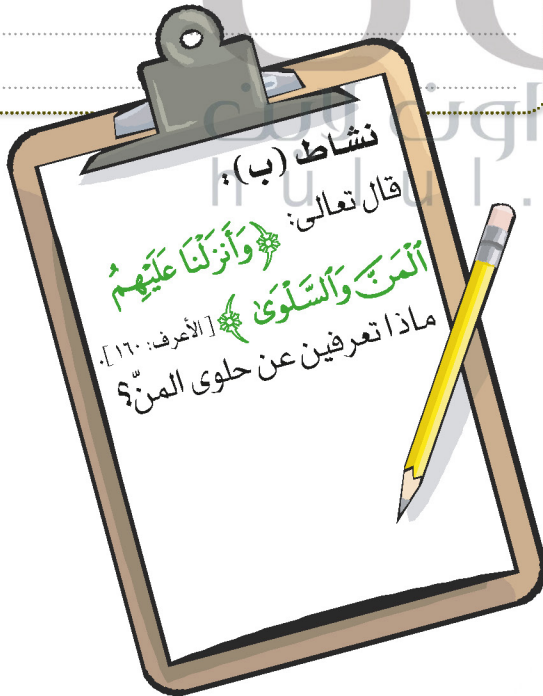 نشاط (ب):
قال تعالى: ﴿وَأَنزَلْنَا عَلَيْهِمُ
ٱلْمَنَّ وَٱلسَّلْوَىٰ﴾ [الأعرف: ١٦٠].
ماذا تعرفين عن حلوى المنّ؟
اون لاين
hulul.